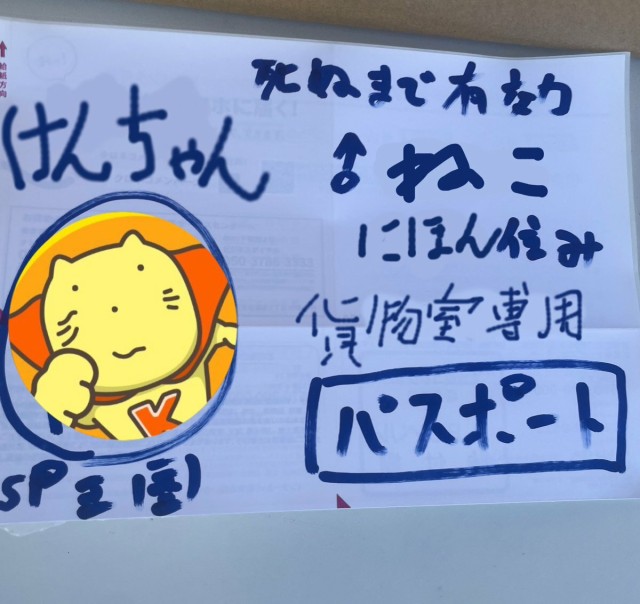 給紙方向
死ぬまで有効
けんちゃん
♂ねこ
にほん住み
貨物室専用
K
パスポート
SP王国